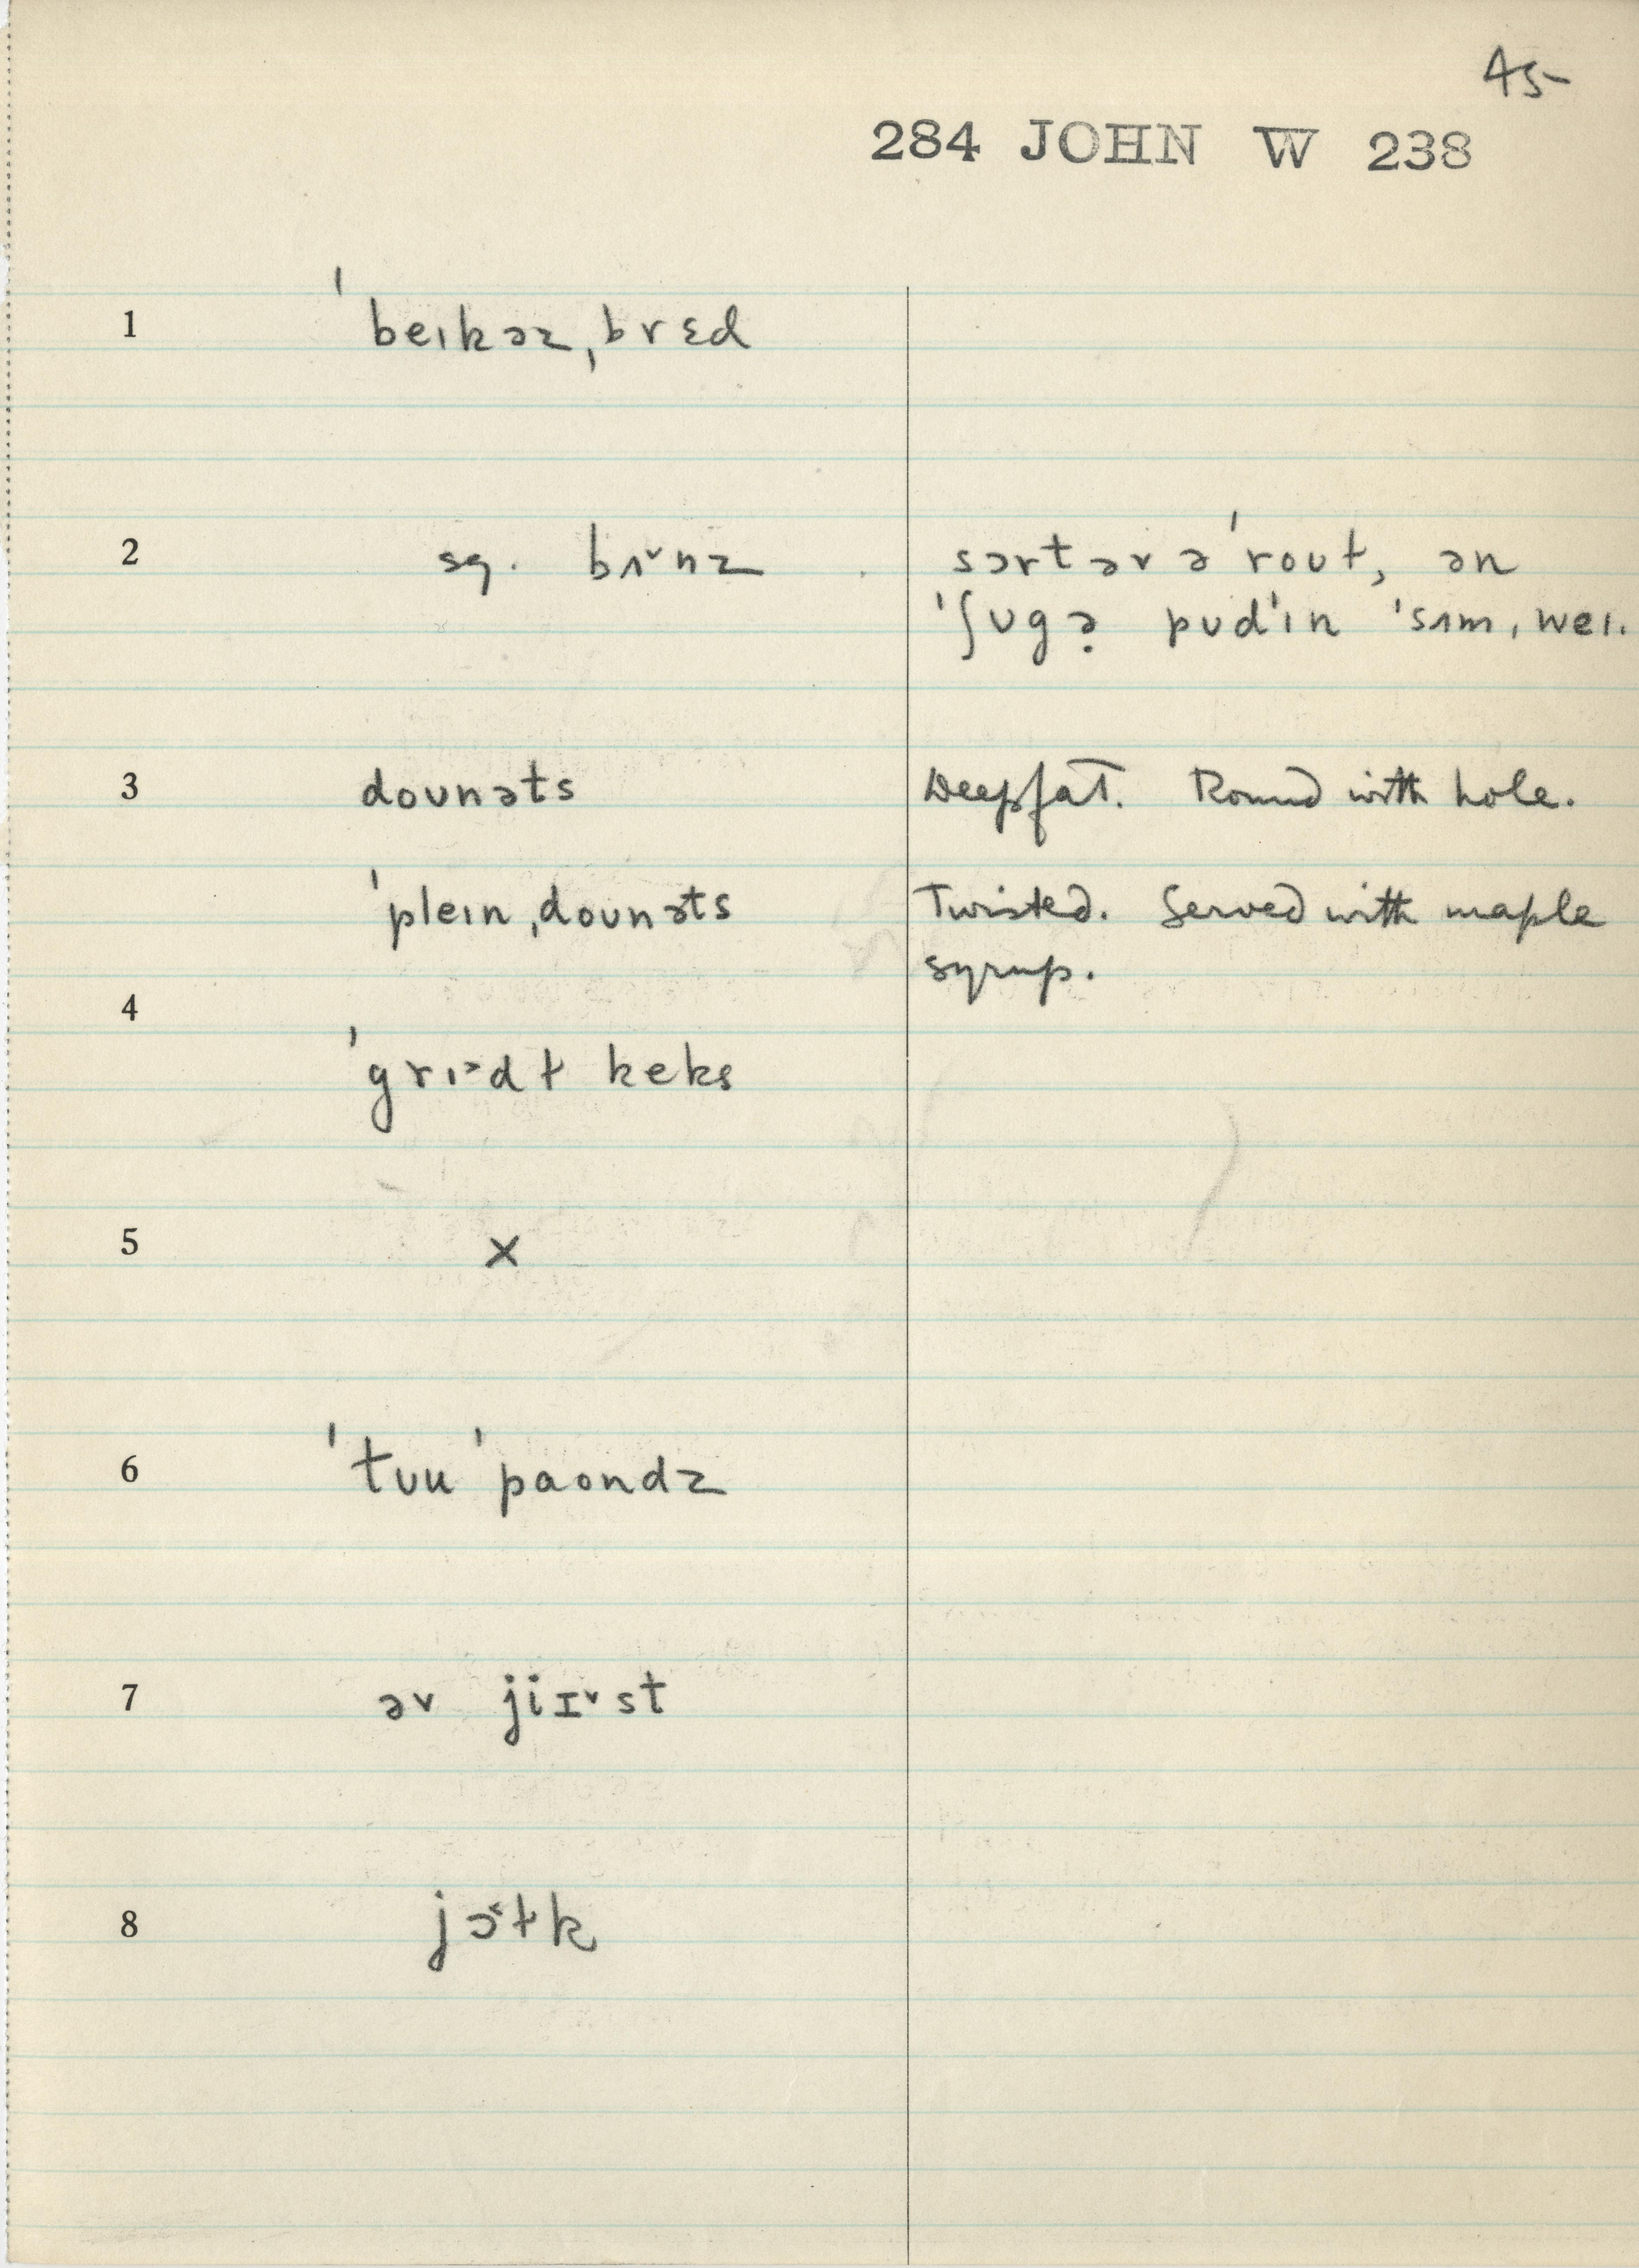 45-
284 JOHN W 238
1 ˈbeɪkəz ˌbrɛd
2 sg. bʌ˅nz sərtər ə ˈroʊt, ən
ˈʃʊgə̣ pʊdˈɪn ˈsʌm ˌweɪ.
3 doʊnəts Deepfat. Round with hole.
ˈpleɪn ˌdoʊnəts Twisted. Served with maple
syrup.
4
ˈgrɪ˃dɫ keks
5 x
6 ˈtʊu ˈpaondz
7 əv jiɪ˅st
8 jɔ˂ɫk